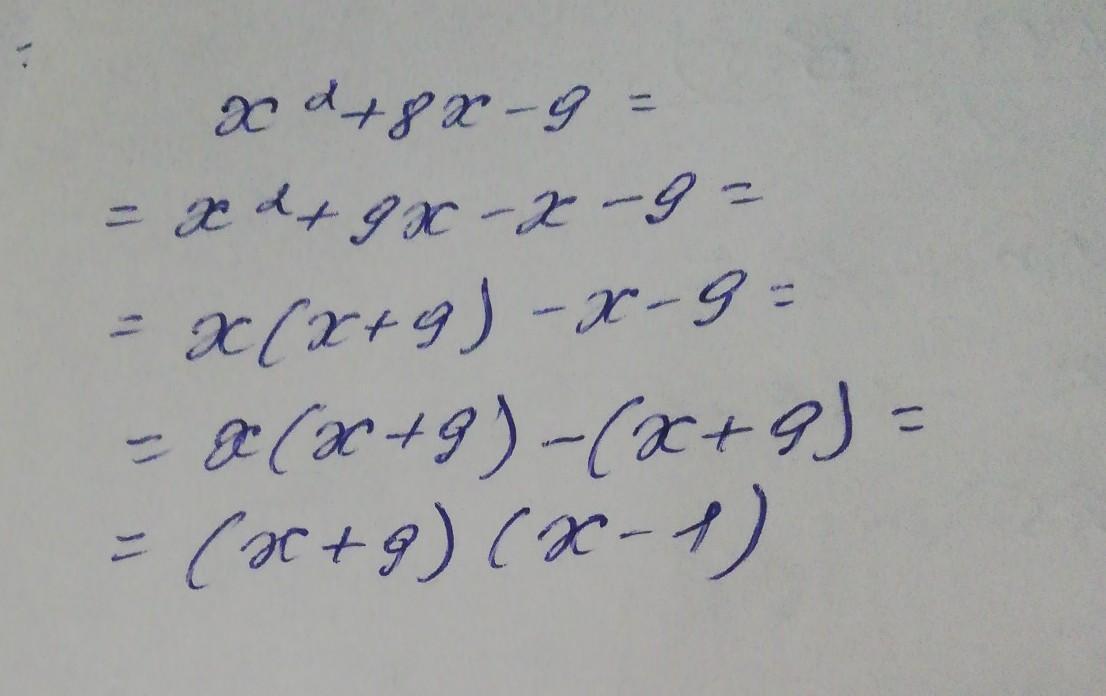 x² + 8x - 9 =
= x² + 9x - x - 9 =
= x(x + 9) - x - 9 =
= x(x + 9) - (x + 9) =
= (x + 9) (x - 1)